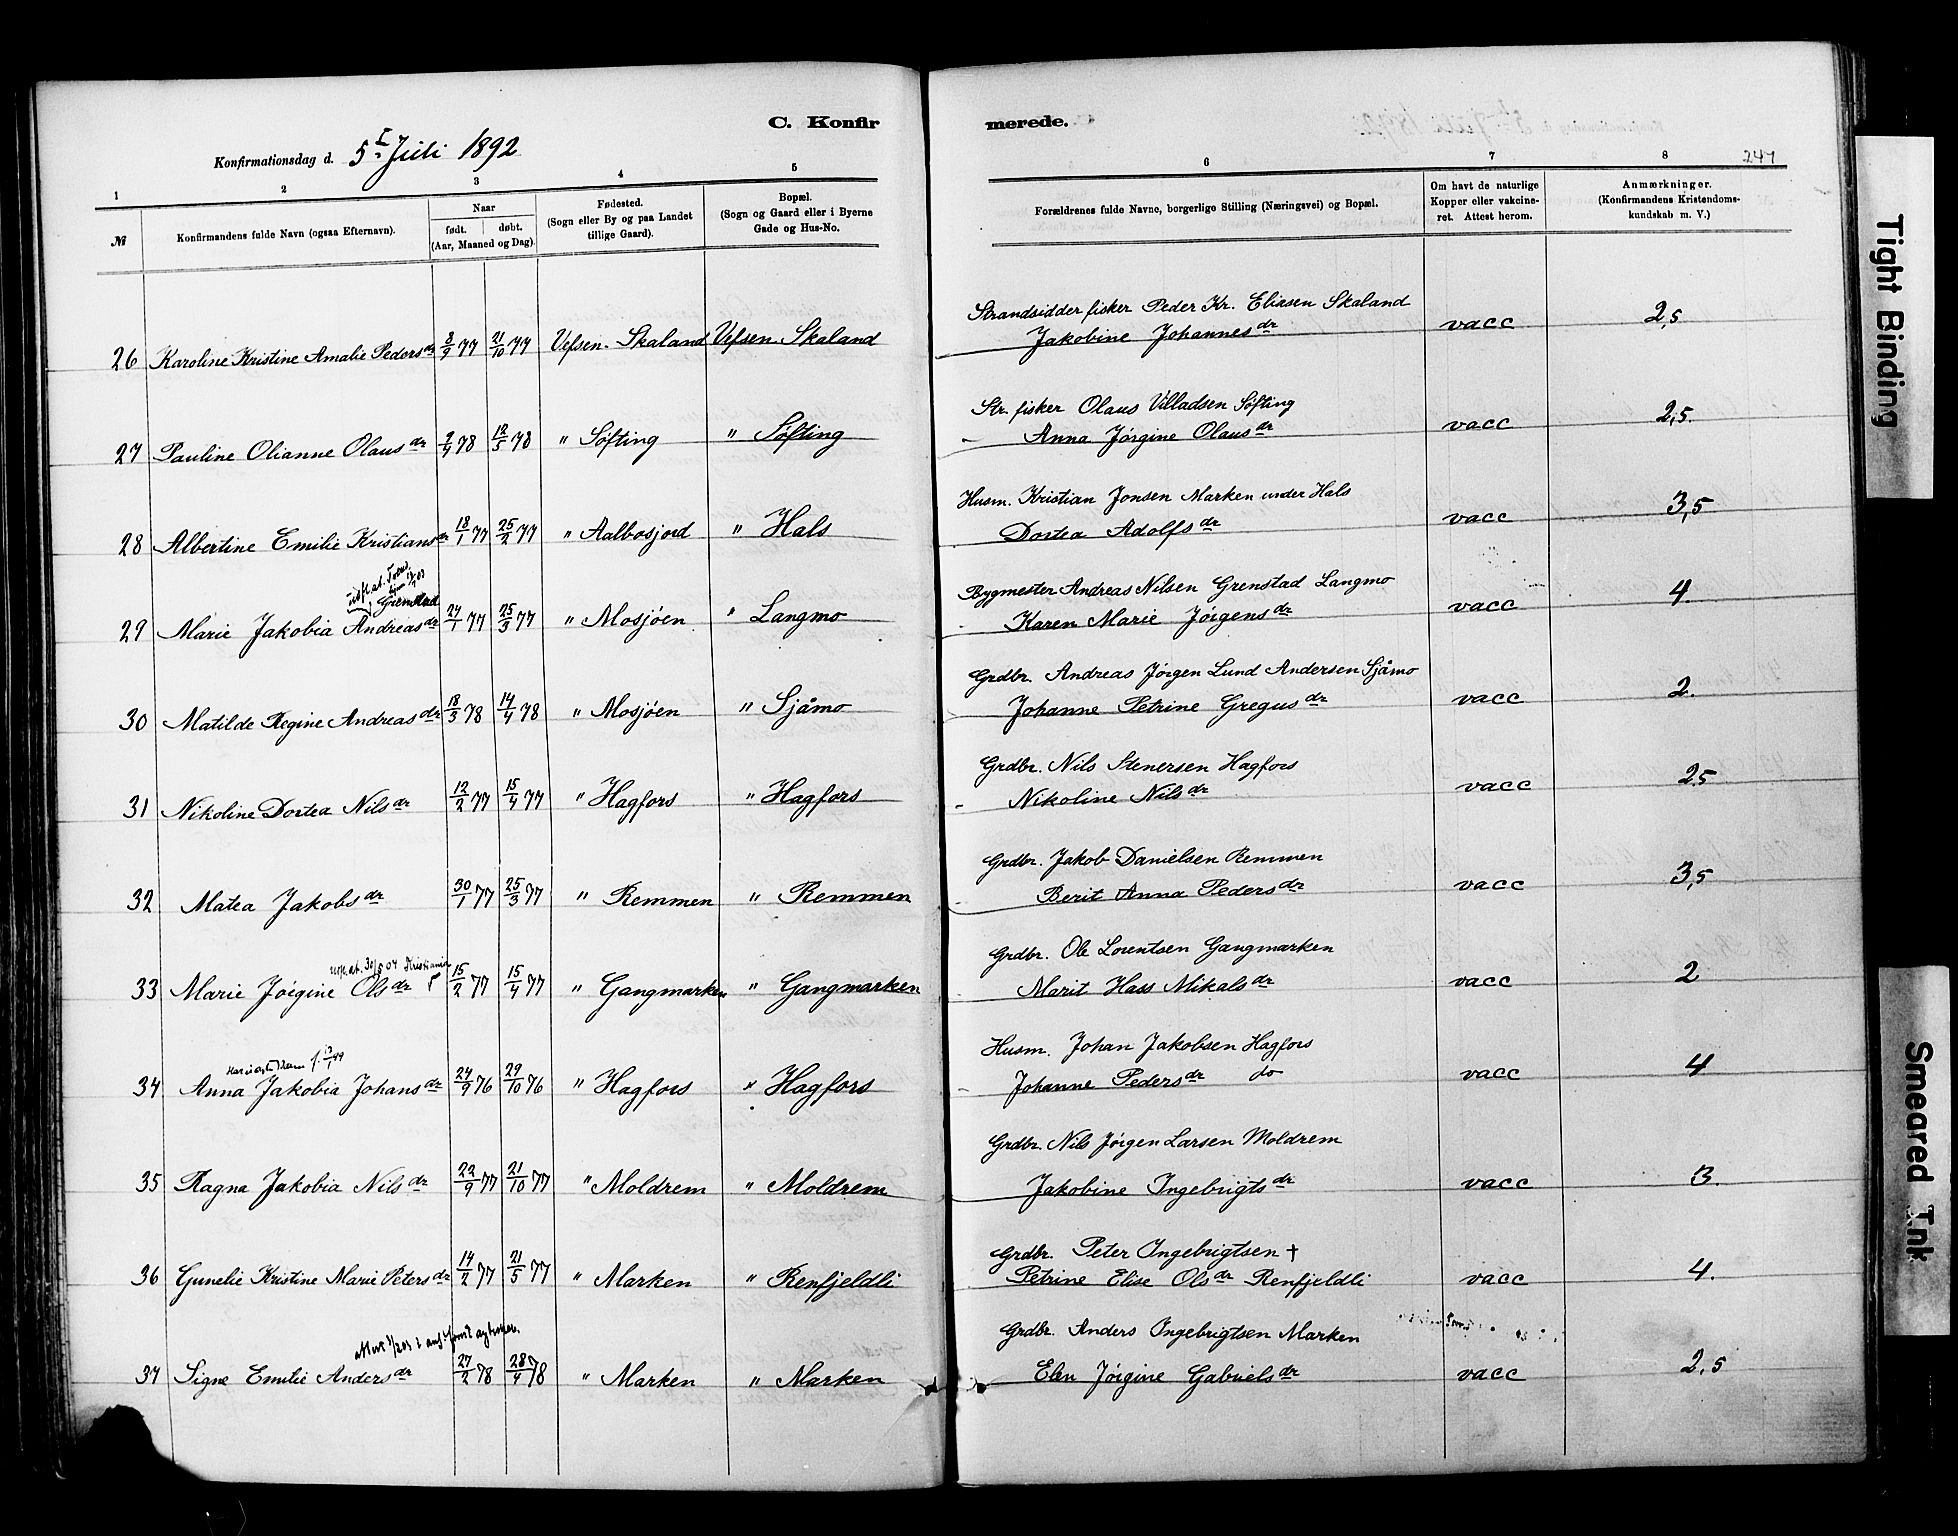 C. Konfirmerede.
Konfirmationsdag d. 5te Juli 1892
247
1 2 3 4 5 6 7 8
№ Konfirmandens fulde Navn (ogsaa Efternavn). Naar født. døbt. (Aar, Maaned og Dag). Fødested. (Sogn eller By og paa Landet tillige Gaard). Bopæl. (Sogn og Gaard eller i Byerne Gade og Hus-No. Forældrenes fulde Navne, borgerlige Stilling (Næringsvei) og Bopæl. Om havt de naturlige Kopper eller vakcineret. Attest herom. Anmærkninger. (Konfirmandens Kristendomskundskab m. V.)
Strandsidder fisker Peder Kr. Eliasen Skaland
26 Karoline Kristine Amalie Pedersdr 8/9 77 21/10 77 Vefsen. Skaland Vefsen Skaland Jakobine Johannesdr vacc 2,5
Str. fisker Olaus Villadsen Søfting
27 Pauline Olianne Olausdr 2/4 78 12/5 78 " Søfting " Søfting Anna Jørgine Olausdr vacc 2,5.
Husm. Kristian Jonsen Marken under Hals
28 Albertine Emilie Kristiansdr 18/1 77 25/2 77 " Aalbosjord " Hals Dortea Adolfsdr vacc 3,5
Grenstad
Bygmester Andreas Nilsen Grenstad Langmo
29 Marie Jakobia Andreasdr 24/1 77 25/3 77 " Mosjøen " Langmo Karen Marie Jørgensdr vacc 4.
Grdbr. Andreas Jørgen Lund Andersen Sjåmo
30 Matilde Regine Andreasdr 18/3 78 14/4 78 " Mosjøen " Sjåmo Johanne Petrine Gregusdr vacc 2.
Grdbr. Nils Stenersen Hagfors
31 Nikoline Dortea Nilsdr 12/2 77 15/4 77 " Hagfors " Hagfors Nikoline Nilsdr vacc 2,5
Grdbr. Jakob Danielsen Remmen
32 Matea Jakobsdr 30/1 77 25/3 77 " Remmen " Remmen Berit Anna Pedersdr vacc 3,5
Kristiania
Grdbr. Ole Lorentsen Gangmarken
33 Marie Jørgine Olsdr 15/2 77 15/4 77 " Gangmarken " Gangmarken Marit Hass Mikalsdr vacc 2
Husm. Johan Jakobsen Hagfors
34 Anna Jakobia Johansdr 24/9 76 29/10 76 " Hagfors " Hagfors Johanne Pedersdr do vacc 4
Grdbr. Nils Jørgen Larsen Moldrem
35 Ragna Jakobia Nilsdr 22/9 77 21/10 77 " Moldrem " Moldrem Jakobine Ingebrigtsdr vacc 3.
Grdbr. Peter Ingebrigtsen †
36 Gunelie Kristine Marie Petersdr 14/2 77 21/5 77 " Marken " Renfjeldli Petrine Elise Olsdr Renfjeldli vacc 4.
Grdbr. Anders Ingebrigtsen Marken
37 Signe Emilie Andersdr 27/2 78 28/4 78 " Marken " Marken Elen Jørgine Gabrielsdr vacc 2,5
Tight Binding
Smeared Ink